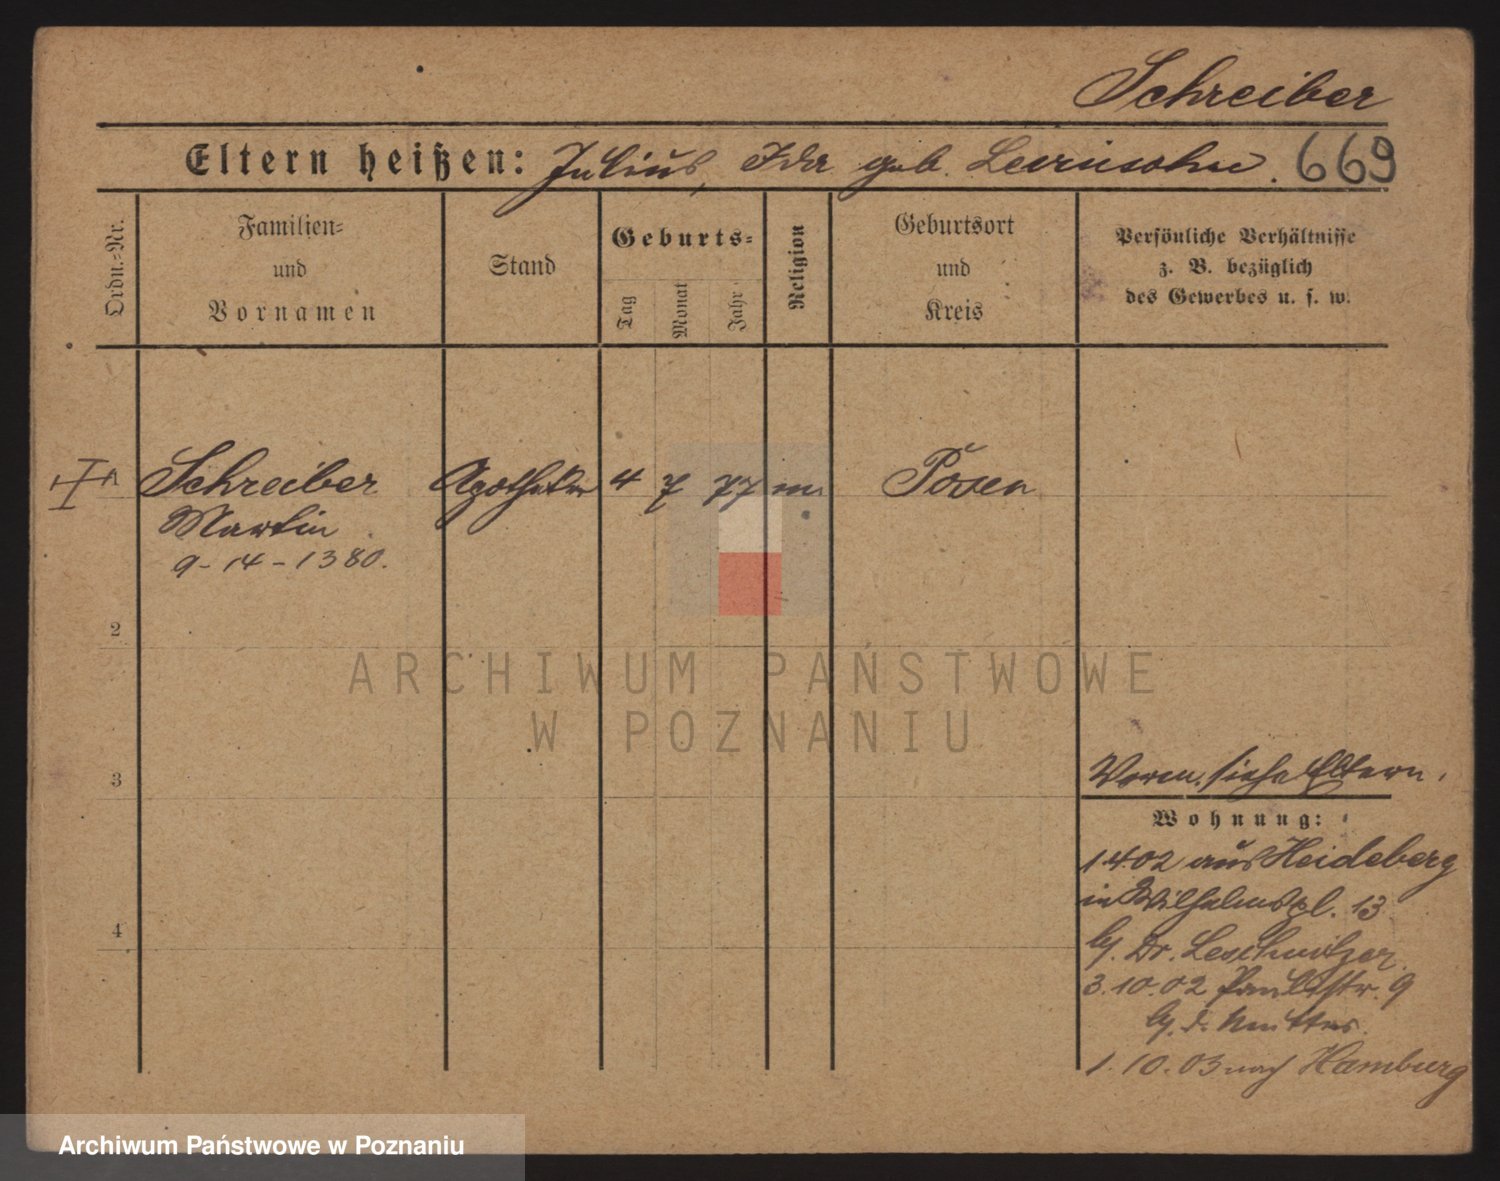 Schreiber
Eltern heißen: Julius, Ida geb. Levinsohn. 669
Ordn.-Nr.
Familien-
und
Vornamen
Stand
Geburts-
Tag
Monat
Jahr
Religion
Geburtsort
und
Kreis
Persönliche Verhältnisse
z. B. bezüglich
des Gewerbes u. s. w.
Schreiber Apotheker 4 7 77 m. Posen
Martin
9-14-1380.
2
ARCHIWUM PAŃSTWOWE
W POZNANIU
3
siehe Eltern.
Wohnung:
1.4.02 aus Heidelberg
in Wilhelmspl. 13
b. Dr. Leschnitzer
4
3.10.02 Paulistr. 9
b. d. Mutter.
1.10.03 nach Hamburg
Archiwum Państwowe w Poznaniu